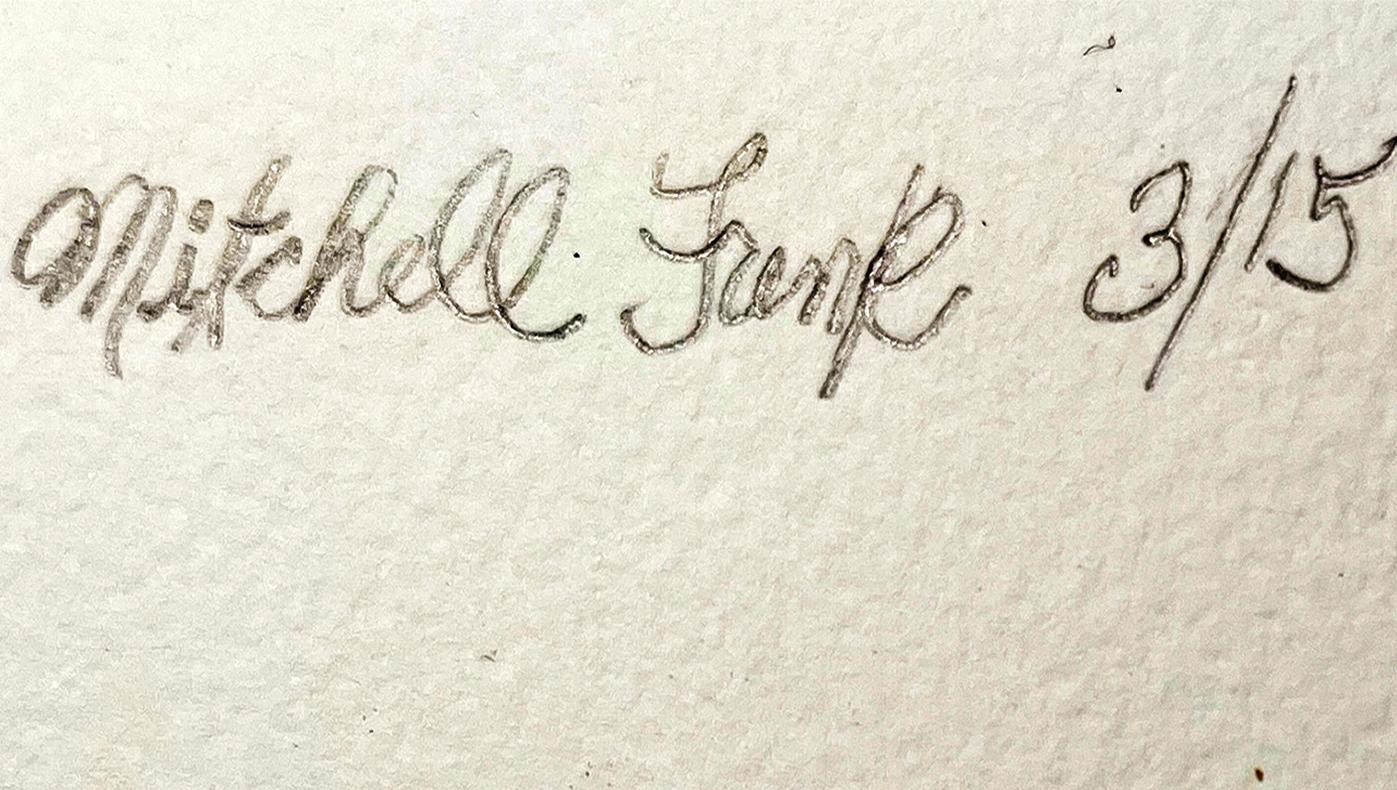 Mitchell Funk 3/15